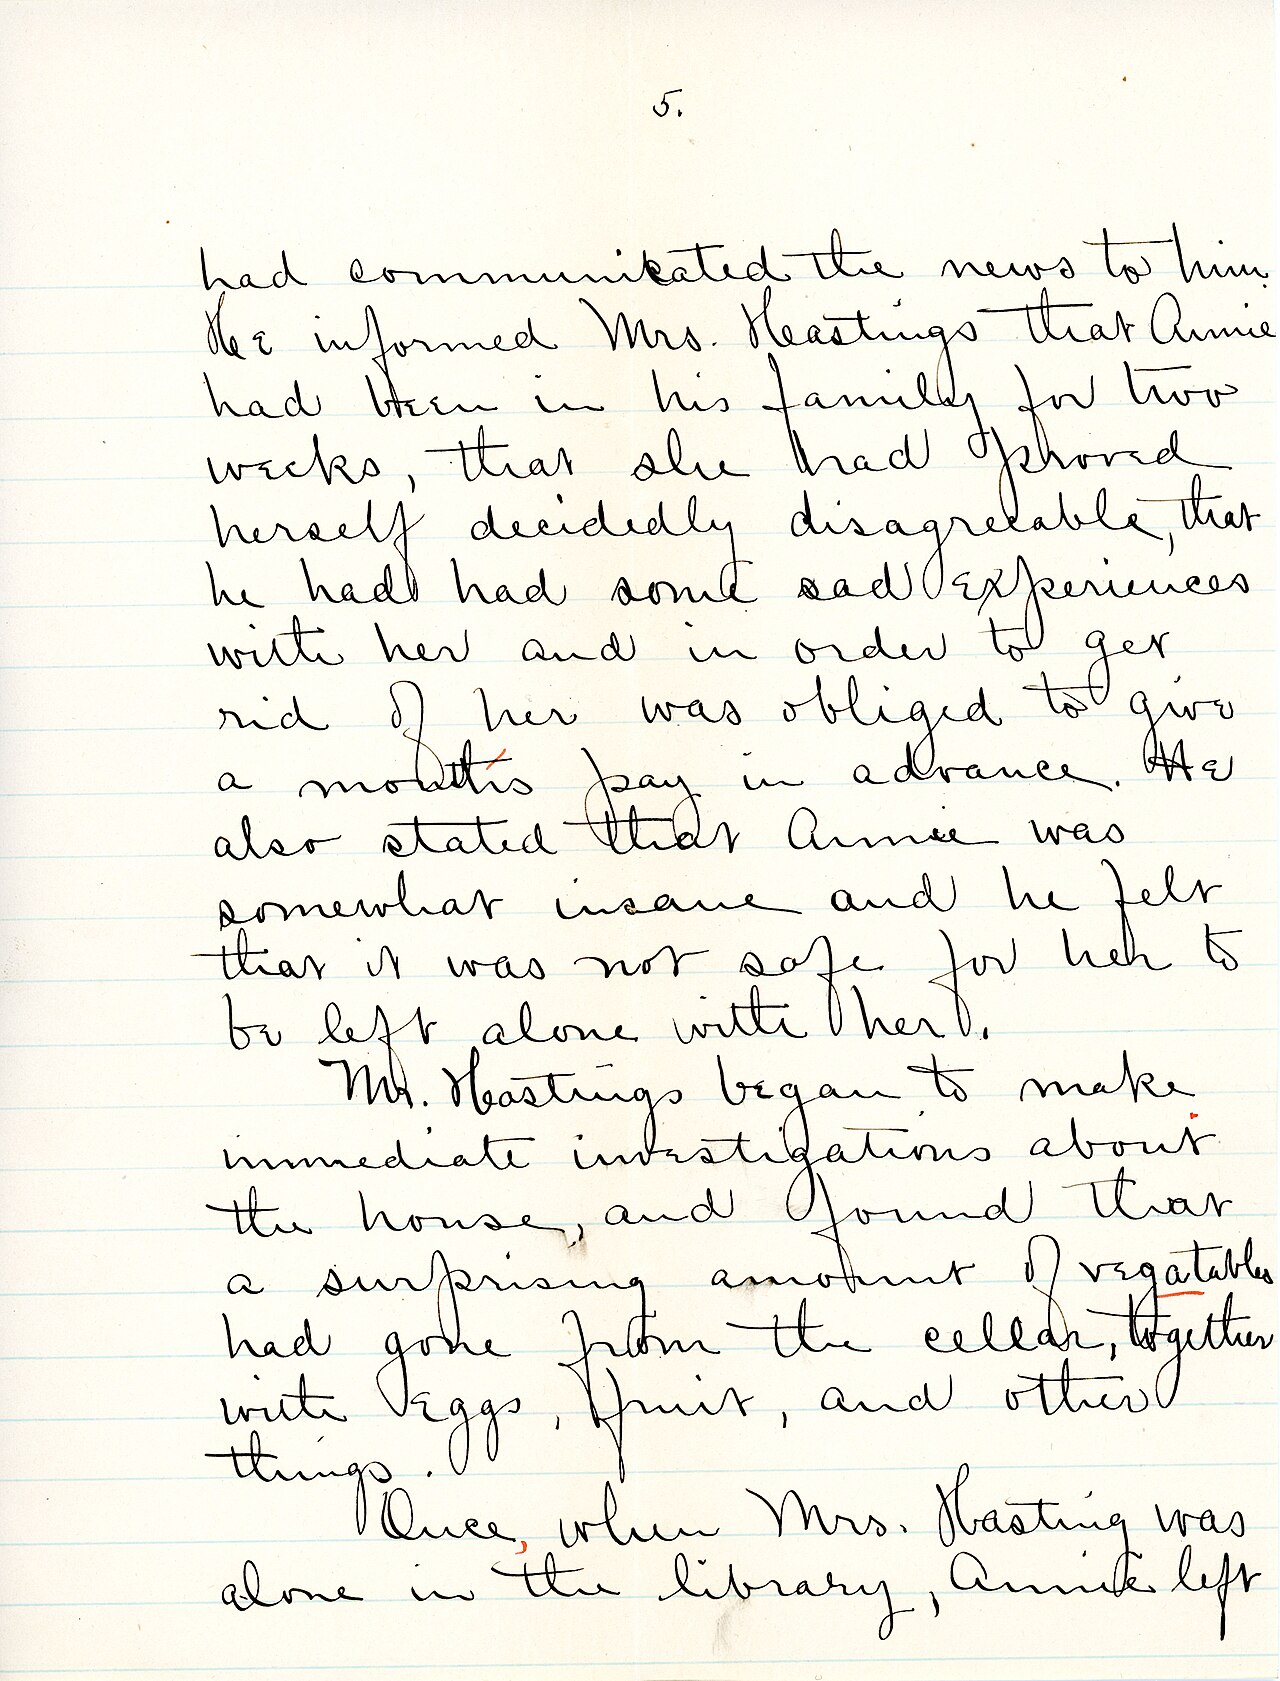 5.
had communicated the news to him.
He informed Mrs. Hastings that Annie
had been in his family for two
weeks, that she had proved
herself decidedly disagreeable, that
he had had some sad experiences
with her and in order to get
rid of her was obliged to give
a month's pay in advance. He
also stated that Annie was
somewhat insane and he felt
that it was not safe for her to
be left alone with her.
Mr. Hastings began to make
immediate investigations about
the house, and found that
a surprising amount of vegatables
had gone from the cellar, together
with eggs, fruit, and other
things.
Once, when Mrs. Hasting was
alone in the library, Annie left